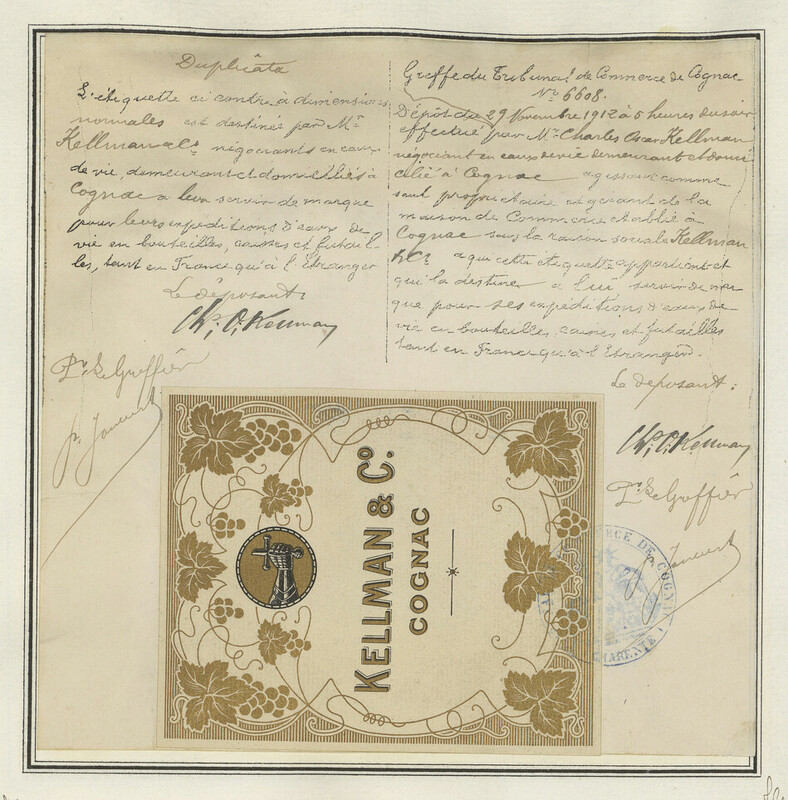 Duplicata
L'étiquette ci contre à dimensions
normales est destinée par Mr.
Kellman & Co négociants en eaux
de vie, demeurant et domiciliés à
Cognac a leur servir de marque
pour leurs expéditions d'eaux de
vie en bouteilles, caisses et futail-
les, tant en France qu'à l'Etranger
Le déposant:
Ch. O. Kellman
Pr. Le Greffier
Greffe du Tribunal de Commerce de Cognac
No 6608.
Dépôt du 29 Novembre 1912 à 5 heures du soir
effectué par Mr. Charles Oscar Kellman
négociant en eaux de vie demeurant et domi
cilié à Cognac agissant comme
seul propriétaire et gérant de la
maison de Commerce établie à
Cognac sous la raison sociale Kellman
& Co a qui cette étiquette appartient et
qui la destine a lui servir de mar
que pour ses expéditions d'eaux de
vie en bouteilles, caisses et futailles
tant en France qu'à l'Etranger.
Le deposant:
Ch. O. Kellman
Pr. Le Greffier
KELLMAN & Co.
COGNAC
DE COGNAC
CHARENTE